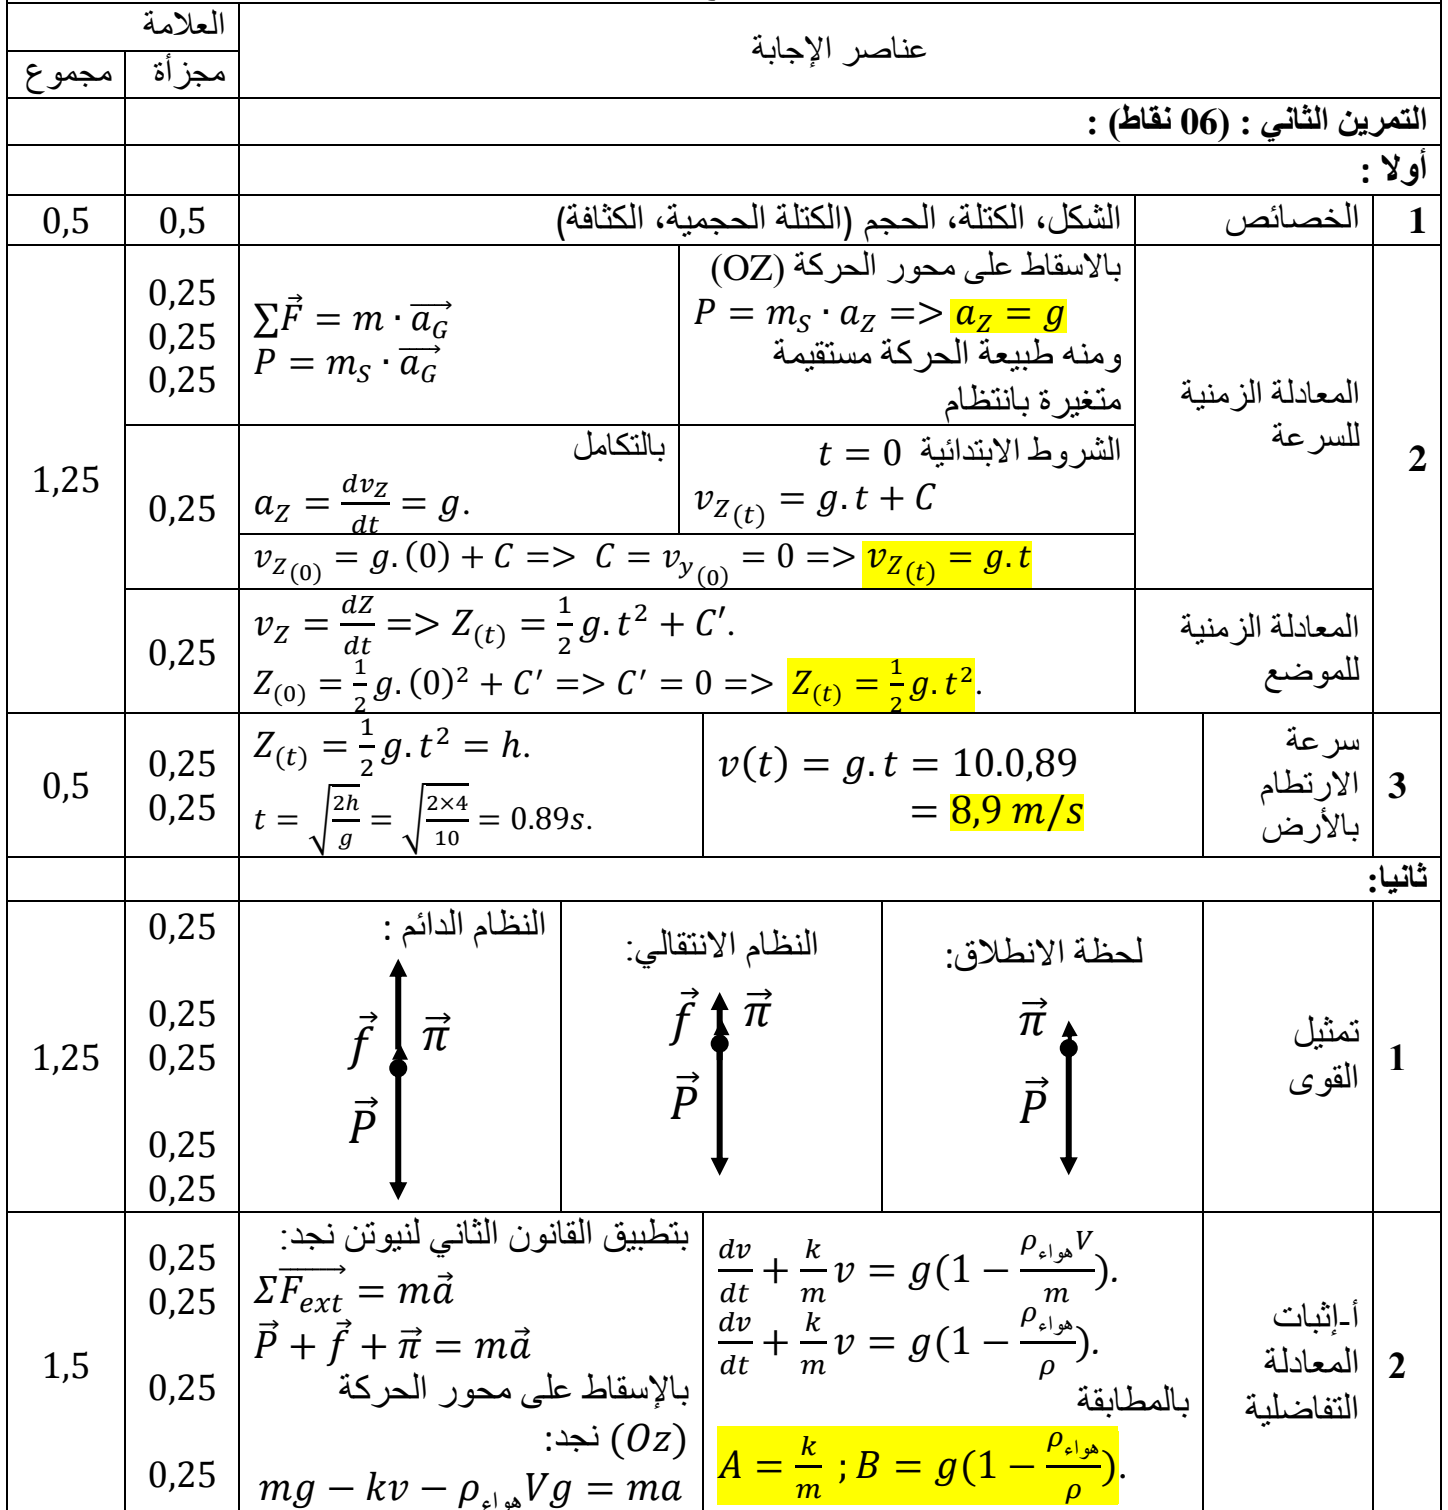 العلامة
عناصر الإجابة
مجزأة
مجموع
التمرين الثاني : (06 نقاط) :
أولا :
1
الخصائص
الشكل، الكتلة، الحجم (الكتلة الحجمية، الكثافة)
0,5
0,5
2
المعادلة الزمنية
للسرعة
بالاسقاط على محور الحركة (OZ)
P = m_S · a_Z => a_Z = g
ومنه طبيعة الحركة مستقيمة
متغيرة بانتظام
∑F⃗ = m · a_G⃗
P = m_S · a_G⃗
0,25
0,25
0,25
1,25
الشروط الابتدائية t = 0
v_Z(t) = g.t + C
بالتكامل
a_Z = dv_Z/dt = g.
0,25
v_Z(0) = g.(0) + C => C = v_y(0) = 0 => v_Z(t) = g.t
المعادلة الزمنية
للموضع
v_Z = dZ/dt => Z_(t) = 1/2 g.t² + C′.
Z_(0) = 1/2 g.(0)² + C′ => C′ = 0 => Z_(t) = 1/2 g.t².
0,25
3
سرعة
الارتطام
بالأرض
v(t) = g.t = 10.0,89
= 8,9 m/s
Z_(t) = 1/2 g.t² = h.
t = √(2h/g) = √(2×4/10) = 0.89s.
0,25
0,25
0,5
ثانيا:
1
تمثيل
القوى
لحظة الانطلاق:
π⃗
P⃗
النظام الانتقالي:
f⃗ π⃗
P⃗
النظام الدائم :
f⃗ π⃗
P⃗
0,25
0,25
0,25
0,25
0,25
1,25
2
أ-إثبات
المعادلة
التفاضلية
dv/dt + k/m v = g(1 − ρ_هواء V/m).
dv/dt + k/m v = g(1 − ρ_هواء/ρ).
بالمطابقة
A = k/m ; B = g(1 − ρ_هواء/ρ).
بتطبيق القانون الثاني لنيوتن نجد:
ΣF_ext⃗ = ma⃗
P⃗ + f⃗ + π⃗ = ma⃗
بالإسقاط على محور الحركة
(Oz) نجد:
mg − kv − ρ_هواء Vg = ma
0,25
0,25
0,25
0,25
1,5